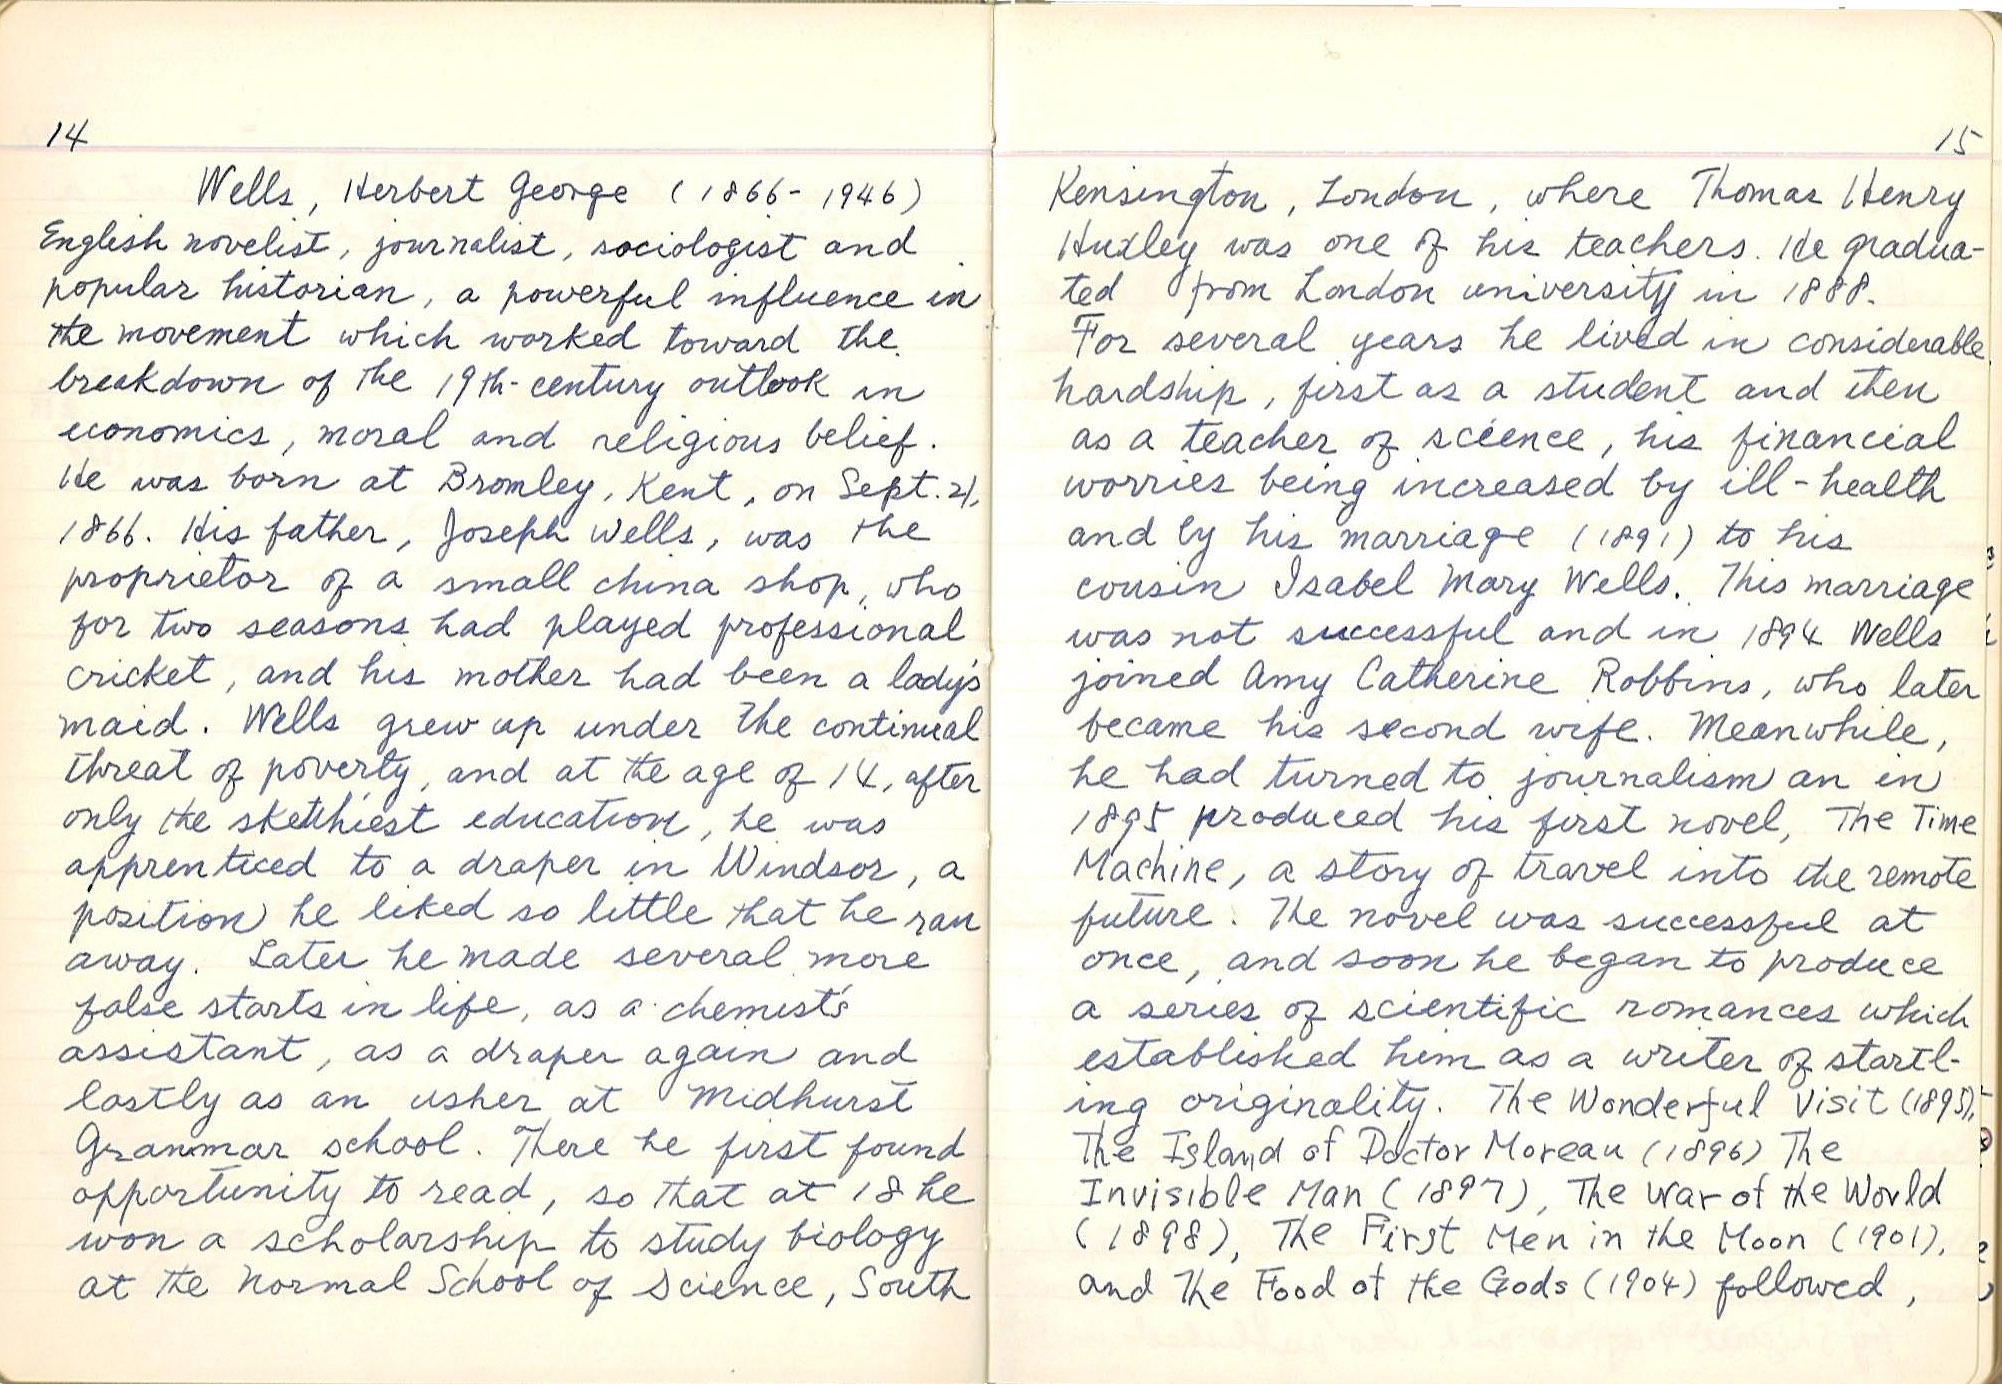 14
Wells, Herbert George (1866-1946)
English novelist, journalist, sociologist and
popular historian, a powerful influence in
the movement which worked toward the
breakdown of the 19th-century outlook in
economics, moral and religious belief.
He was born at Bromley, Kent, on Sept. 21,
1866. His father, Joseph Wells, was the
proprietor of a small china shop, who
for two seasons had played professional
cricket, and his mother had been a lady's
maid. Wells grew up under the continual
threat of poverty, and at the age of 14, after
only the sketchiest education, he was
apprenticed to a draper in Windsor, a
position he liked so little that he ran
away. Later he made several more
false starts in life, as a chemist's
assistant, as a draper again and
lastly as an usher at Midhurst
Grammar school. There he first found
opportunity to read, so that at 18 he
won a scholarship to study biology
at the Normal School of Science, South
15
Kensington, London, where Thomas Henry
Huxley was one of his teachers. He gradua-
ted from London university in 1888.
For several years he lived in considerable
hardship, first as a student and then
as a teacher of science, his financial
worries being increased by ill-health
and by his marriage (1891) to his
cousin Isabel Mary Wells. This marriage
was not successful and in 1894 Wells
joined Amy Catherine Robbins, who later
became his second wife. Meanwhile,
he had turned to journalism an in
1895 produced his first novel, The Time
Machine, a story of travel into the remote
future. The novel was successful at
once, and soon he began to produce
a series of scientific romances which
established him as a writer of startl-
ing originality. The Wonderful Visit (1895),
The Island of Doctor Moreau (1896) The
Invisible Man (1897), The War of the World
(1898), The First Men in the Moon (1901),
and The Food of the Gods (1904) followed,